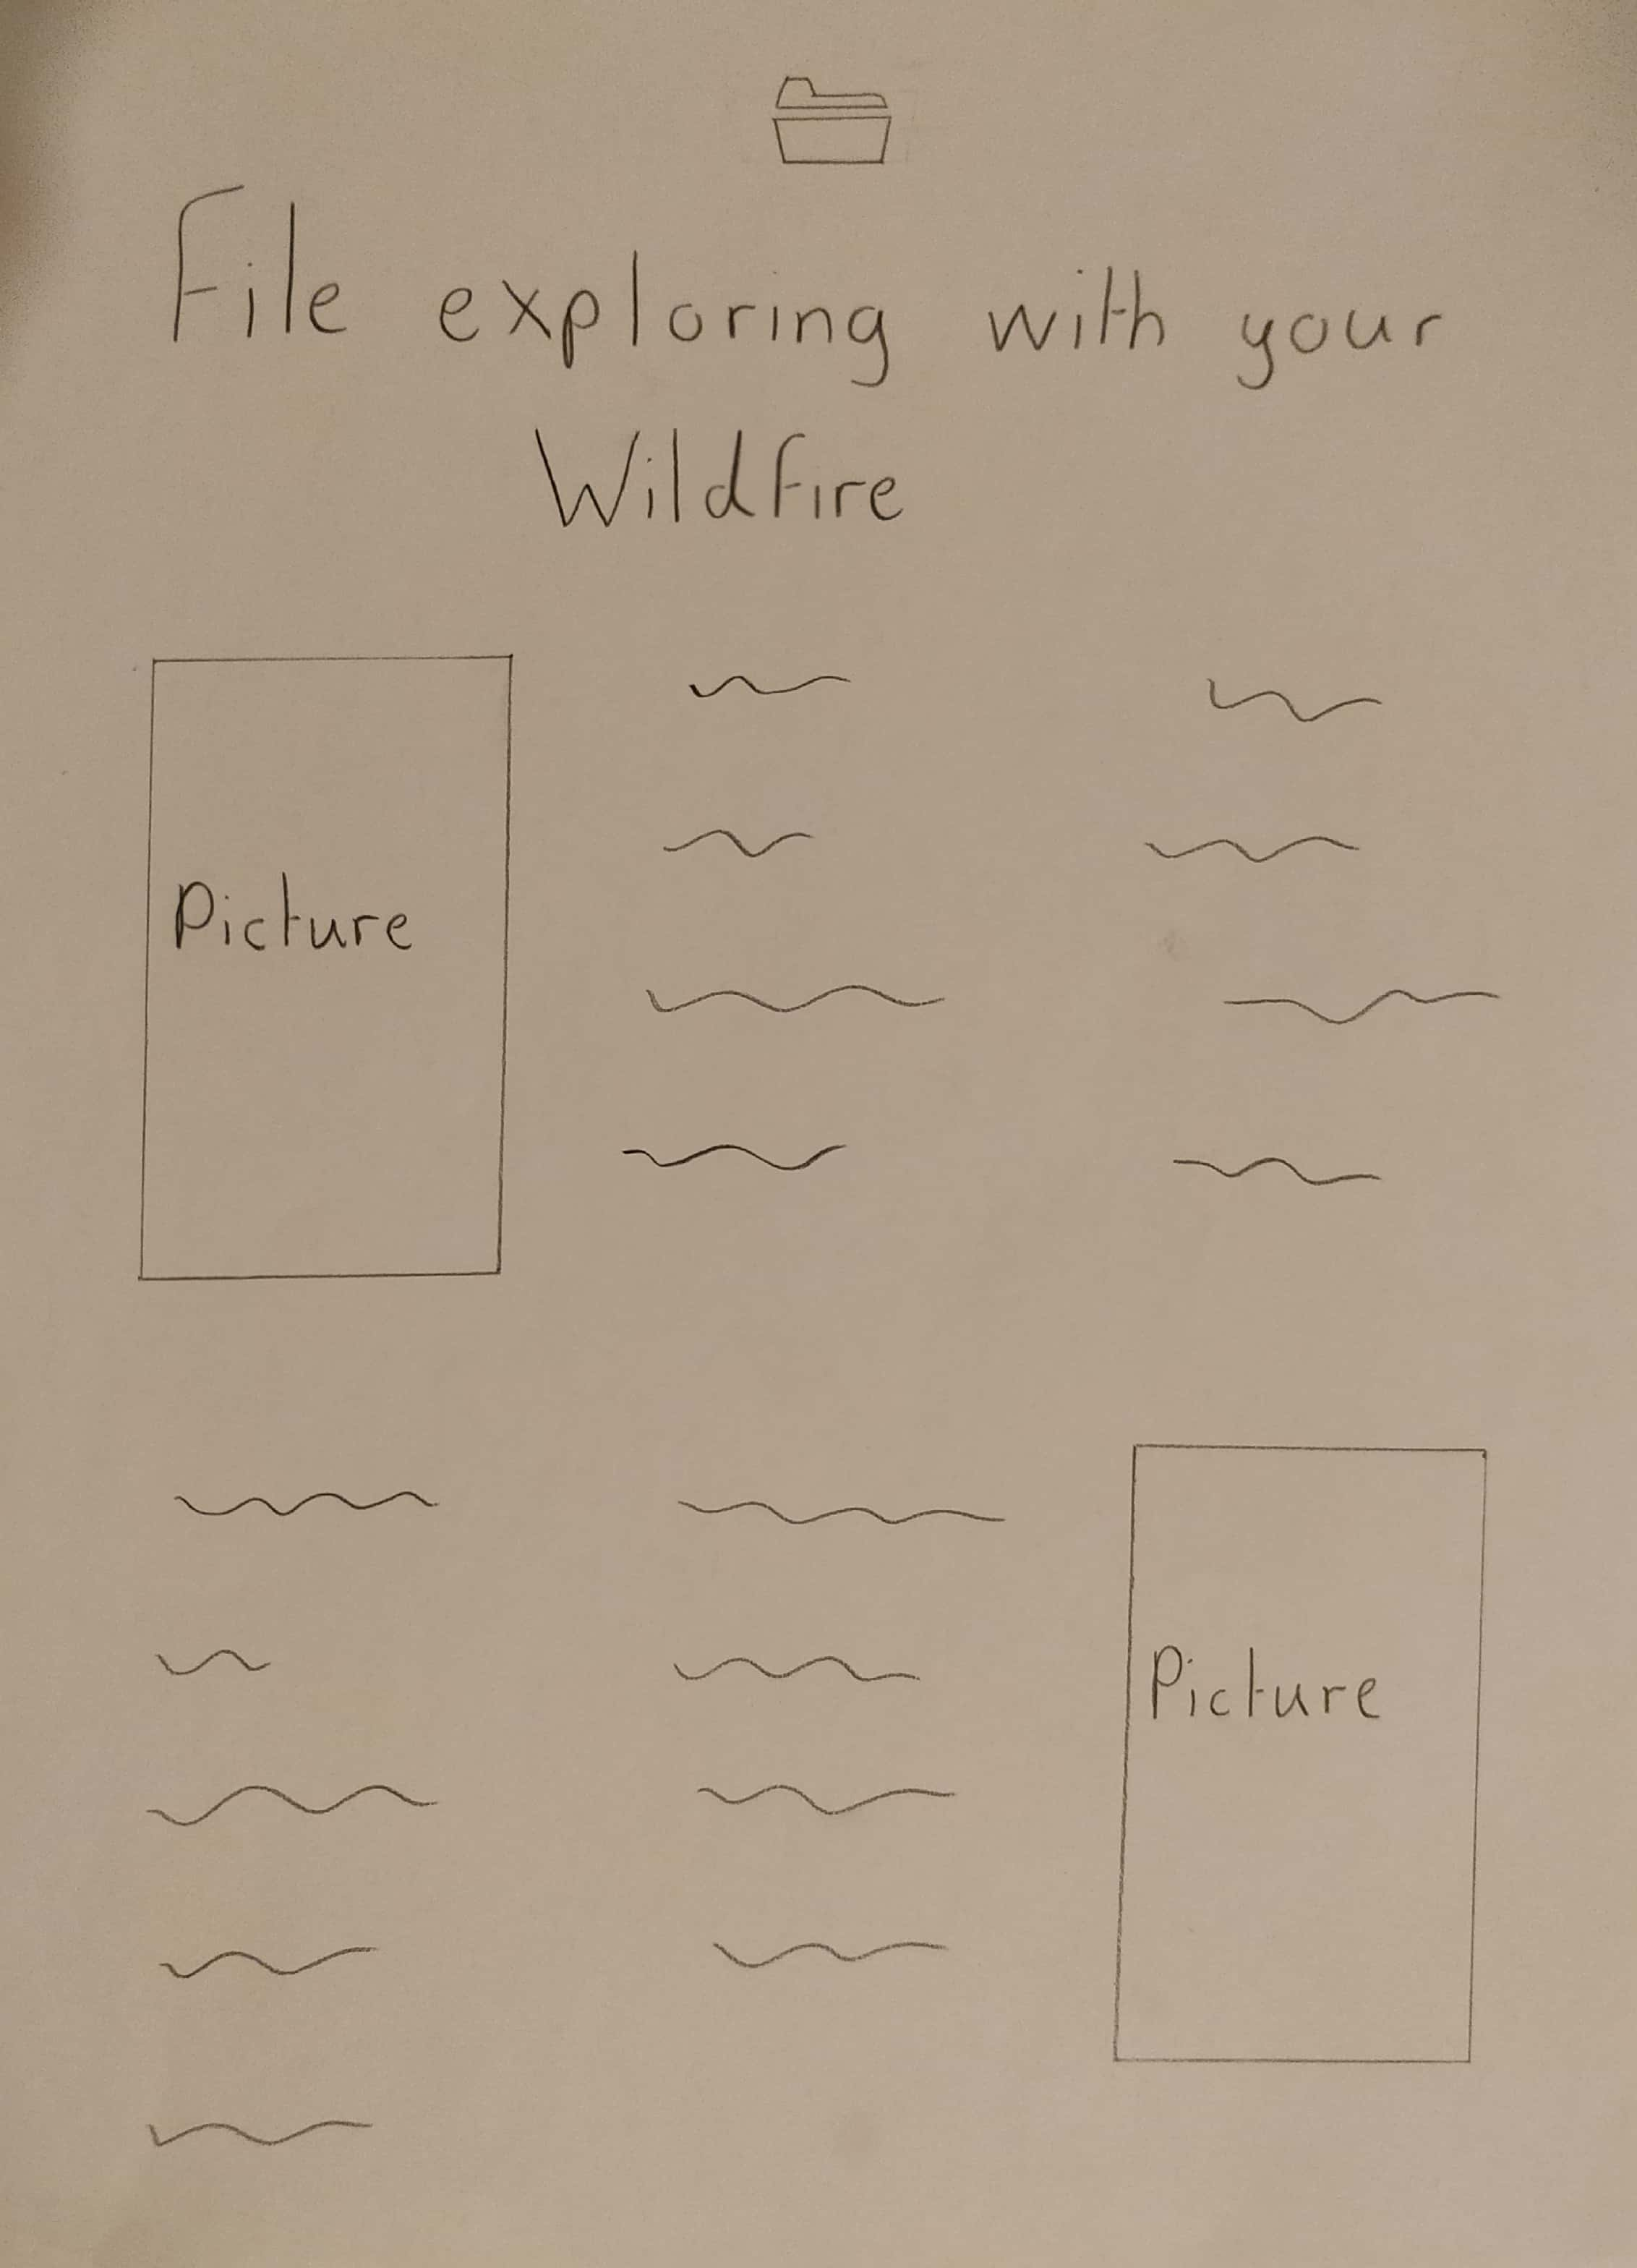 File exploring with your
Wildfire
Picture
Picture